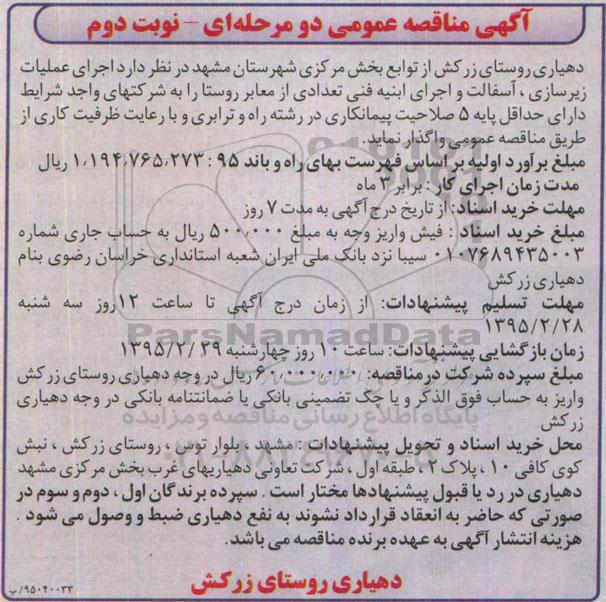 آگهی مناقصه عمومی دو مرحله‌ای - نوبت دوم
دهیاری روستای زرکش از توابع بخش مرکزی شهرستان مشهد در نظر دارد اجرای عملیات
زیرسازی ، آسفالت و اجرای ابنیه فنی تعدادی از معابر روستا را به شرکتهای واجد شرایط
دارای حداقل پایه ۵ صلاحیت پیمانکاری در رشته راه و ترابری و با رعایت ظرفیت کاری از
طریق مناقصه عمومی واگذار نماید.
مبلغ برآورد اولیه بر اساس فهرست بهای راه و باند ۹۵ : ۱،۱۹۴،۷۶۵،۲۷۳ ریال
مدت زمان اجرای کار : برابر ۳ ماه
مهلت خرید اسناد: از تاریخ درج آگهی به مدت ۷ روز
مبلغ خرید اسناد : فیش واریز وجه به مبلغ ۵۰۰،۰۰۰ ریال به حساب جاری شماره
۰۱۰۷۶۸۹۴۳۵۰۰۳ سیبا نزد بانک ملی ایران شعبه استانداری خراسان رضوی بنام
دهیاری زرکش
مهلت تسلیم پیشنهادات: از زمان درج آگهی تا ساعت ۱۲ روز سه شنبه
۱۳۹۵/۲/۲۸
زمان بازگشایی پیشنهادات: ساعت ۱۰ روز چهارشنبه ۱۳۹۵/۲/۲۹
مبلغ سپرده شرکت در مناقصه: ۶۰،۰۰۰،۰۰۰ ریال در وجه دهیاری روستای زرکش
واریز به حساب فوق الذکر و یا چک تضمینی بانکی یا ضمانتنامه بانکی در وجه دهیاری
زرکش
محل خرید اسناد و تحویل پیشنهادات : مشهد ، بلوار توس ، روستای زرکش ، نبش
کوی کافی ۱۰ ، پلاک ۲ ، طبقه اول ، شرکت تعاونی دهیاریهای غرب بخش مرکزی مشهد
دهیاری در رد یا قبول پیشنهادها مختار است . سپرده برندگان اول ، دوم و سوم در
صورتی که حاضر به انعقاد قرارداد نشوند به نفع دهیاری ضبط و وصول می شود .
هزینه انتشار آگهی به عهده برنده مناقصه می باشد.
دهیاری روستای زرکش
۹۵۰۴۰۰۳۳/پ
ParsNamadData
پایگاه اطلاع رسانی مناقصه و مزایده